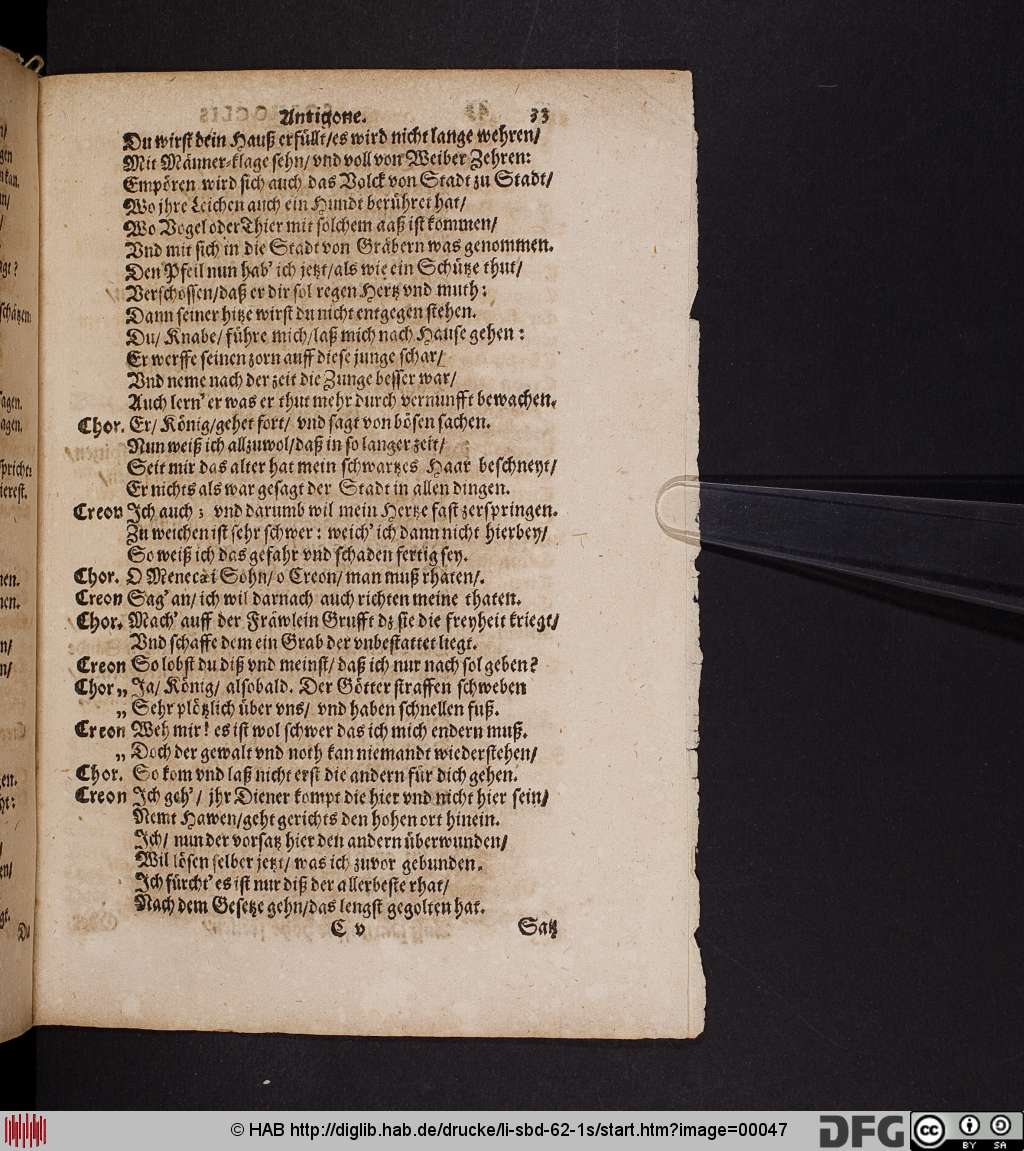 Antigone. 33
Du wirst dein Hauß erfüllt/es wird nicht lange wehren/
Mit Männer-klage sehn/ vnd voll von Weiber Zehren:
Empören wird sich auch das Volck von Stadt zu Stadt/
Wo jhre Leichen auch ein Hundt berühret hat/
Wo Vogel oder Thier mit solchem aaß ist kommen/
Vnd mit sich in die Stadt von Gräbern was genommen.
Den Pfeil nun hab' ich jetzt/als wie ein Schütze thut/
Verschossen/daß er dir sol regen Hertz vnd muth:
Dann seiner hitze wirst du nicht entgegen stehen.
Du/ Knabe/ führe mich/laß mich nach Hause gehen:
Er werffe seinen zorn auff diese junge schar/
Vnd neme nach der zeit die Zunge besser war/
Auch lern' er was er thut mehr durch vernunfft bewachen.
Chor. Er/ König/gehet fort/ vnd sagt von bösen sachen.
Nun weiß ich allzuwol/daß in so langer zeit/
Seit mir das alter hat mein schwartzes Haar beschneyt/
Er nichts als war gesagt der Stadt in allen dingen.
Creon Ich auch; vnd darumb wil mein Hertze fast zerspringen.
Zu weichen ist sehr schwer: weich' ich dann nicht hierbey/
So weiß ich das gefahr vnd schaden fertig sey.
Chor. O Menecæi Sohn/ o Creon/ man muß rhaten/.
Creon Sag' an/ ich wil darnach auch richten meine thaten.
Chor. Mach' auff der Fräwlein Grufft dz sie die freyheit kriegt/
Vnd schaffe dem ein Grab der vnbestattet liegt.
Creon So lobst du diß vnd meinst/ daß ich nur nach sol geben?
Chor „ Ja/ König/ alsobald. Der Götter straffen schweben
„ Sehr plötzlich über vns/ vnd haben schnellen fuß.
Creon Weh mir! es ist wol schwer das ich mich endern muß.
„ Doch der gewalt vnd noth kan niemandt wiederstehen/
Chor. So kom vnd laß nicht erst die andern für dich gehen.
Creon Ich geh'/ jhr Diener kompt die hier vnd nicht hier sein/
Nemt Hawen/geht gerichts den hohen ort hinein.
Ich/ nun der vorsatz hier den andern überwunden/
Wil lösen selber jetzt/ was ich zuvor gebunden.
Ich fürcht' es ist nur diß der allerbeste rhat/
Nach dem Gesetze gehn/das lengst gegolten hat.
C v Satz
© HAB http://diglib.hab.de/drucke/li-sbd-62-1s/start.htm?image=00047
DFG
cc BY SA